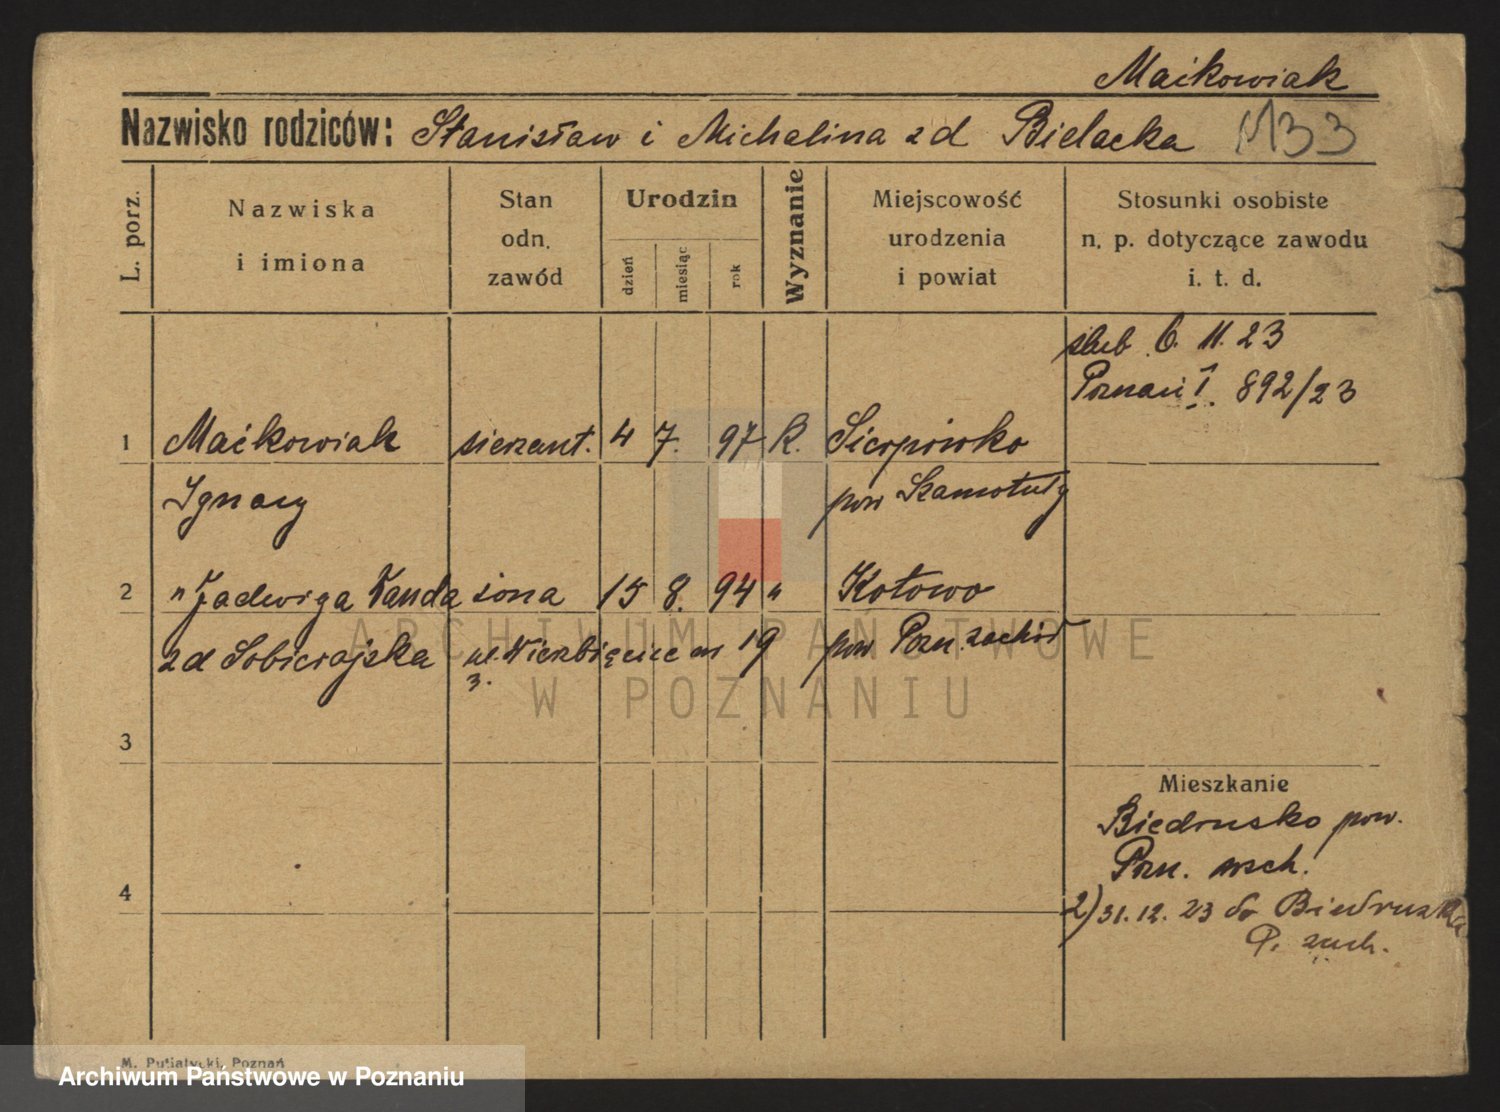 Maćkowiak
Nazwisko rodziców: Stanisław i Michalina zd Bielacka M33
L. porz.
Nazwiska i imiona
Stan odn. zawód
Urodzin
dzień miesiąc rok
Wyznanie
Miejscowość urodzenia i powiat
Stosunki osobiste n. p. dotyczące zawodu i. t. d.
ślub 6. 11. 23
Poznań I. 892/23
1 Maćkowiak sierżant. 4 7. 97 k. Sierpówko
Ignacy pow Szamotuły
2 " Jadwiga Wanda żona 15 8. 94 " Kotowo
zd Sobierajska ul. Wierzbięcice 19 pow Pozn. zachód
3.
ARCHIWUM PAŃSTWOWE
W POZNANIU
3
Mieszkanie
Biedrusko pow.
Pozn. wsch.
4
2) 31. 12. 23 do Biedruska
P. zach.
M. Putiatycki, Poznań
Archiwum Państwowe w Poznaniu